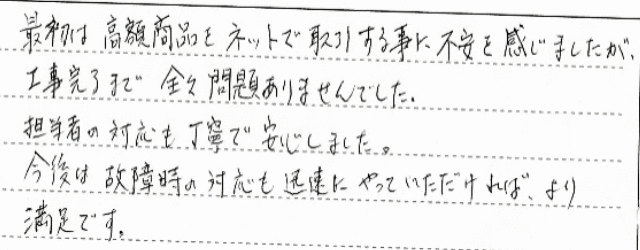 最初は高額商品をネットで取引する事に不安を感じましたが、
工事完了まで全く問題ありませんでした。
担当者の対応も丁寧で安心しました。
今後は故障時の対応も迅速にやっていただければ、より
満足です。